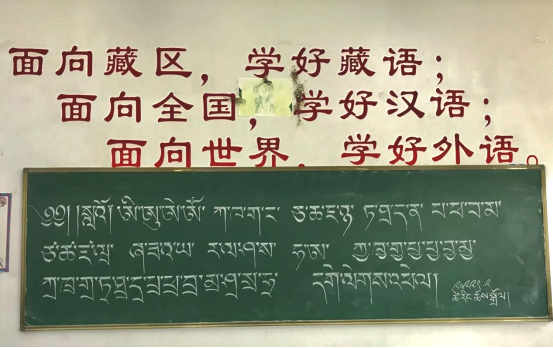 面向藏区，学好藏语；
面向全国，学好汉语；
面向世界，学好外语。
༄༅།།སླཽ། ཨི་ཨུ་ཨེ་ཨོ་ ཀ་ཁ་ག་ང་ ཙ་ཆ་ཇ་ཉ་ ཏ་ཐ་ད་ན་ པ་ཕ་བ་མ་
ཙ་ཚ་ཛ་ཝ་ ཞ་ཟ་འ་ཡ་ ར་ལ་ཤ་ས་ ཧ་ཨ་ ཀྱ་ཁྱ་གྱ་པྱ་ཕྱ་བྱ་མྱ་
ཀྲ་ཁྲ་གྲ་ཏྲ་ཐྲ་དྲ་པྲ་ཕྲ་བྲ་མྲ་ཤྲ་སྲ་ཧྲ་ དགེ་ལེགས་འཕེལ།